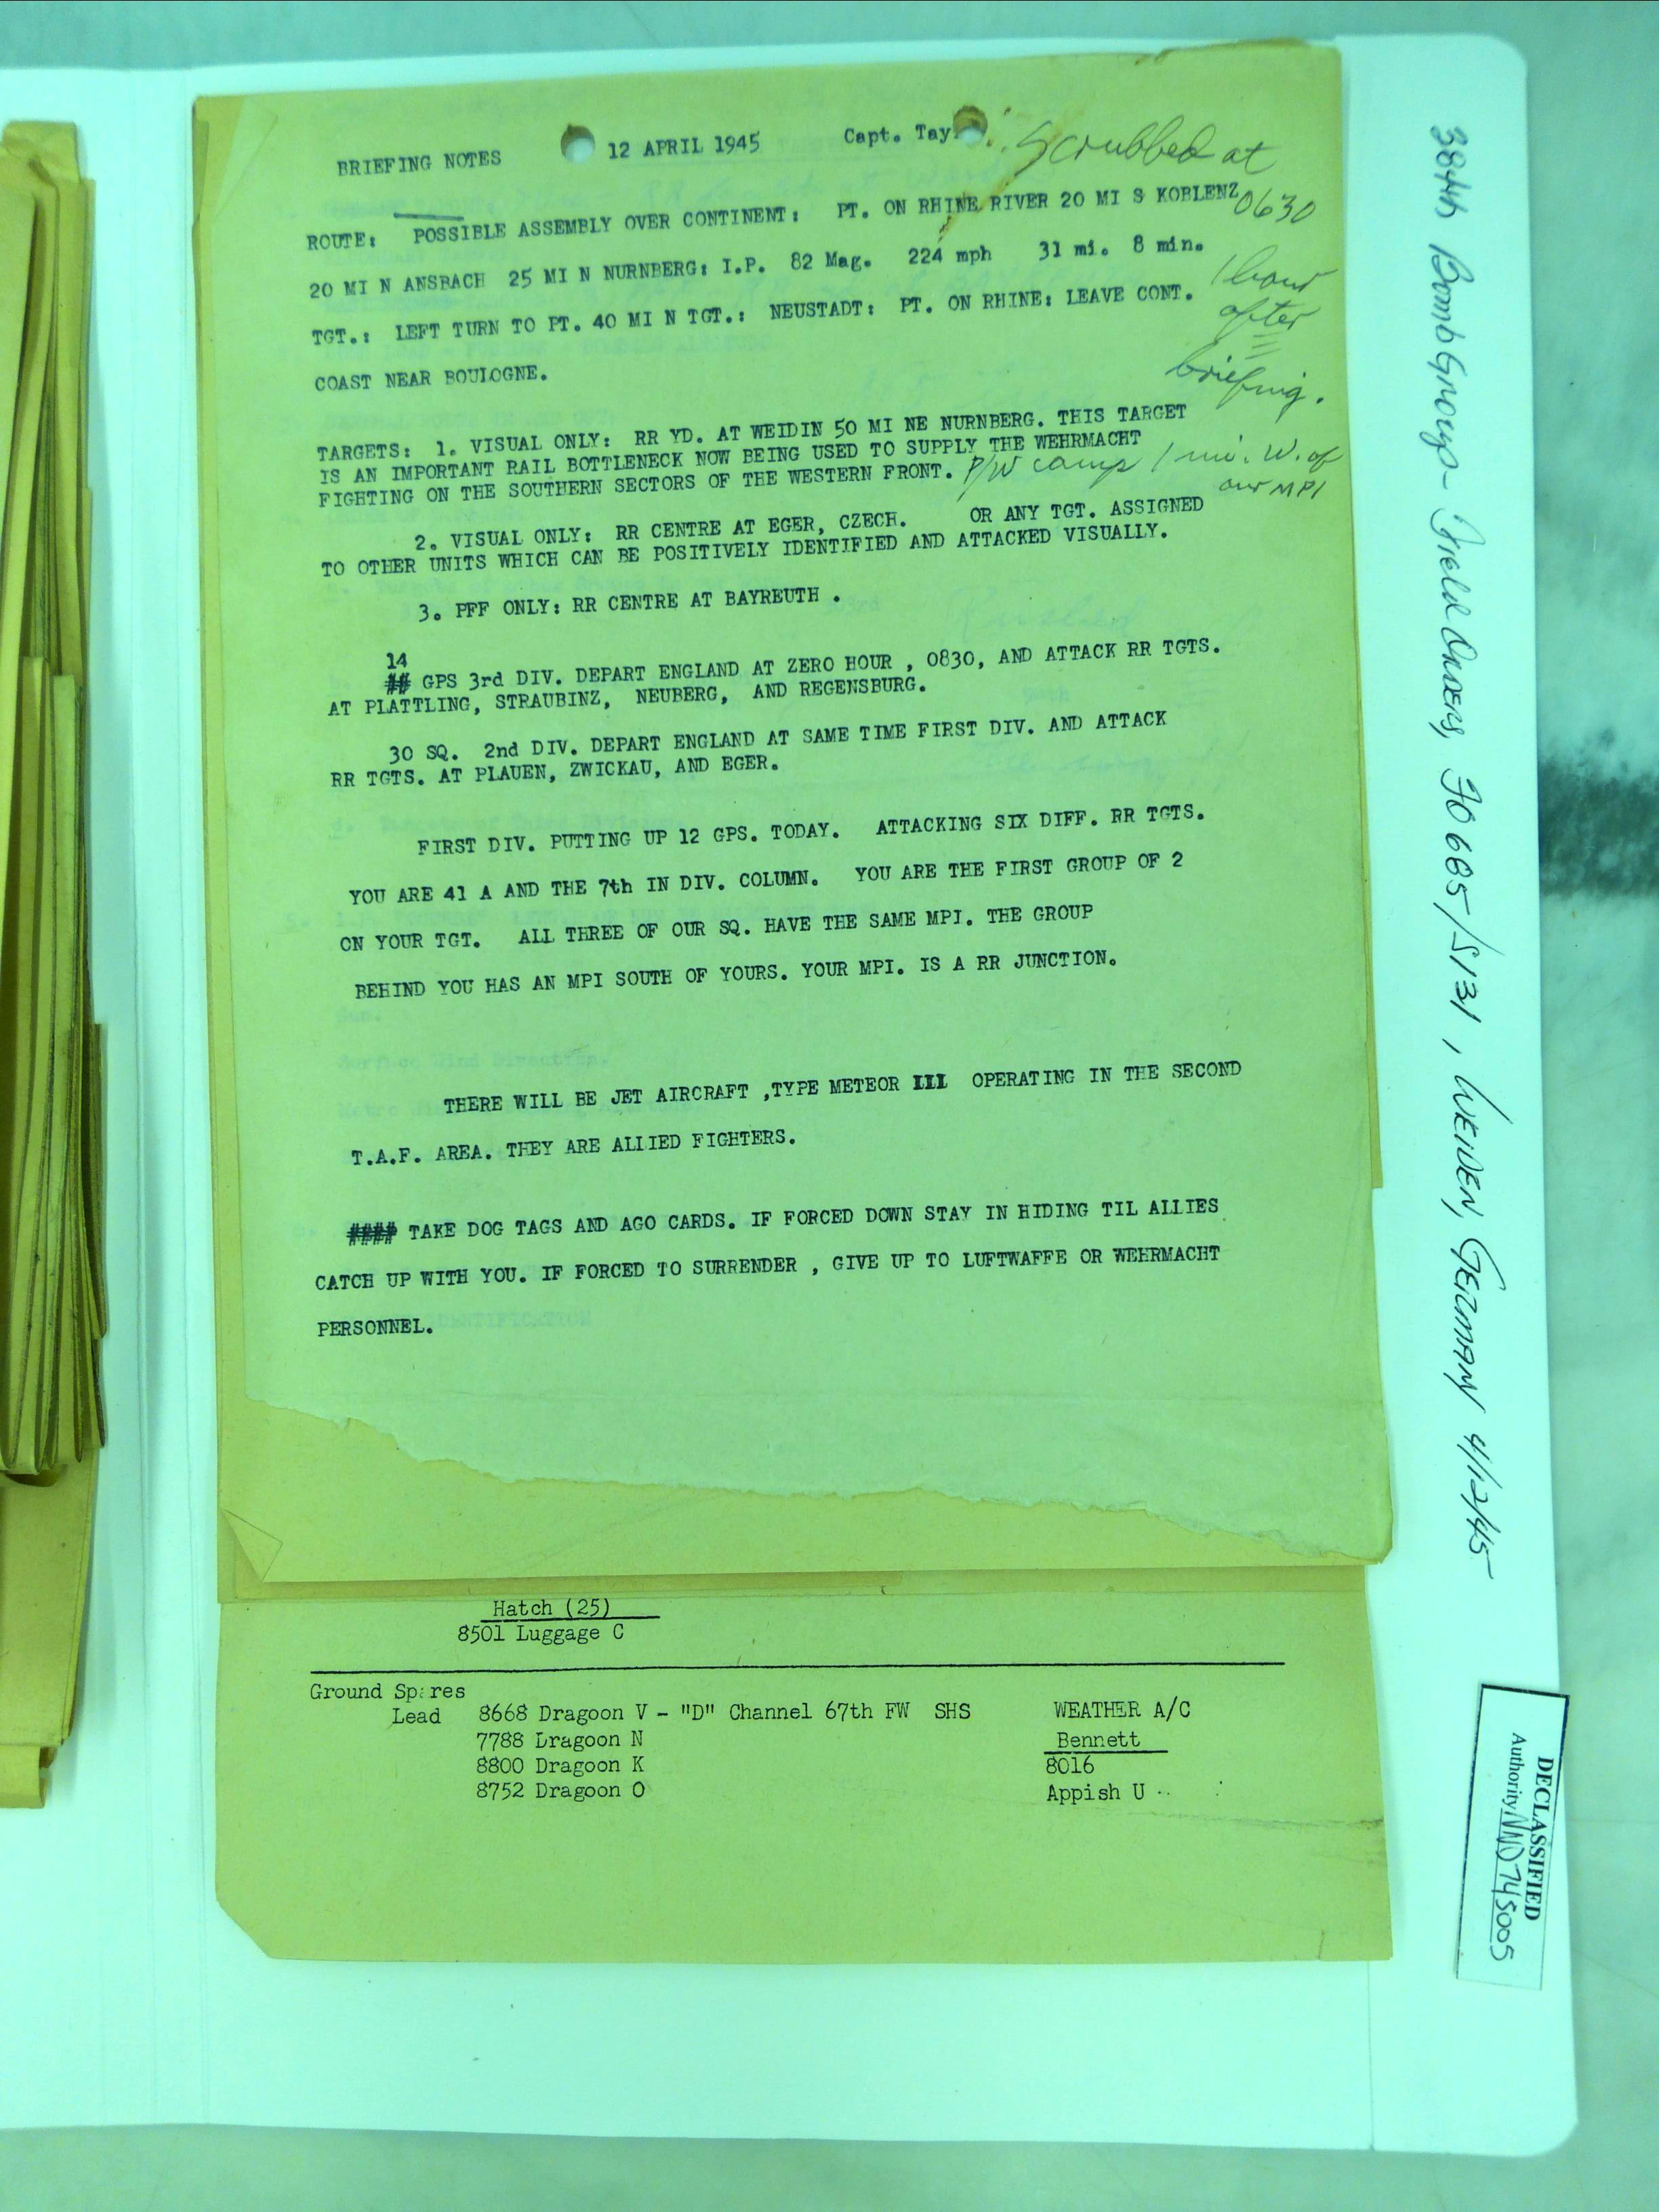 BRIEFING NOTES 12 APRIL 1945 Capt. Tay
Scrubbed at
0630
1 hour
after
briefing.
ROUTE: POSSIBLE ASSEMBLY OVER CONTINENT: PT. ON RHINE RIVER 20 MI S KOBLENZ
20 MI N ANSBACH 25 MI N NURNBERG: I.P. 82 Mag. 224 mph 31 mi. 8 min.
TGT.: LEFT TURN TO PT. 40 MI N TGT.: NEUSTADT: PT. ON RHINE: LEAVE CONT.
COAST NEAR BOULOGNE.
TARGETS: 1. VISUAL ONLY: RR YD. AT WEIDIN 50 MI NE NURNBERG. THIS TARGET
IS AN IMPORTANT RAIL BOTTLENECK NOW BEING USED TO SUPPLY THE WEHRMACHT
FIGHTING ON THE SOUTHERN SECTORS OF THE WESTERN FRONT. P/W camp 1 mi. W. of
our MPI
2. VISUAL ONLY: RR CENTRE AT EGER, CZECH. OR ANY TGT. ASSIGNED
TO OTHER UNITS WHICH CAN BE POSITIVELY IDENTIFIED AND ATTACKED VISUALLY.
3. PFF ONLY: RR CENTRE AT BAYREUTH .
14
## GPS 3rd DIV. DEPART ENGLAND AT ZERO HOUR , 0830, AND ATTACK RR TGTS.
AT PLATTLING, STRAUBINZ, NEUBERG, AND REGENSBURG.
30 SQ. 2nd DIV. DEPART ENGLAND AT SAME TIME FIRST DIV. AND ATTACK
RR TGTS. AT PLAUEN, ZWICKAU, AND EGER.
FIRST DIV. PUTTING UP 12 GPS. TODAY. ATTACKING SIX DIFF. RR TGTS.
YOU ARE 41 A AND THE 7th IN DIV. COLUMN. YOU ARE THE FIRST GROUP OF 2
ON YOUR TGT. ALL THREE OF OUR SQ. HAVE THE SAME MPI. THE GROUP
BEHIND YOU HAS AN MPI SOUTH OF YOURS. YOUR MPI. IS A RR JUNCTION.
THERE WILL BE JET AIRCRAFT ,TYPE METEOR III OPERATING IN THE SECOND
T.A.F. AREA. THEY ARE ALLIED FIGHTERS.
#### TAKE DOG TAGS AND AGO CARDS. IF FORCED DOWN STAY IN HIDING TIL ALLIES
CATCH UP WITH YOU. IF FORCED TO SURRENDER , GIVE UP TO LUFTWAFFE OR WEHRMACHT
PERSONNEL.
Hatch (25)
8501 Luggage C
Ground Spares
Lead 8668 Dragoon V - "D" Channel 67th FW SHS
7788 Dragoon N
8800 Dragoon K
8752 Dragoon O
WEATHER A/C
Bennett
8016
Appish U
384th Bomb Group - Field Orders, FO 685/S131, WEIDEN, GERMANY 4/12/45
DECLASSIFIED
Authority NND 745005